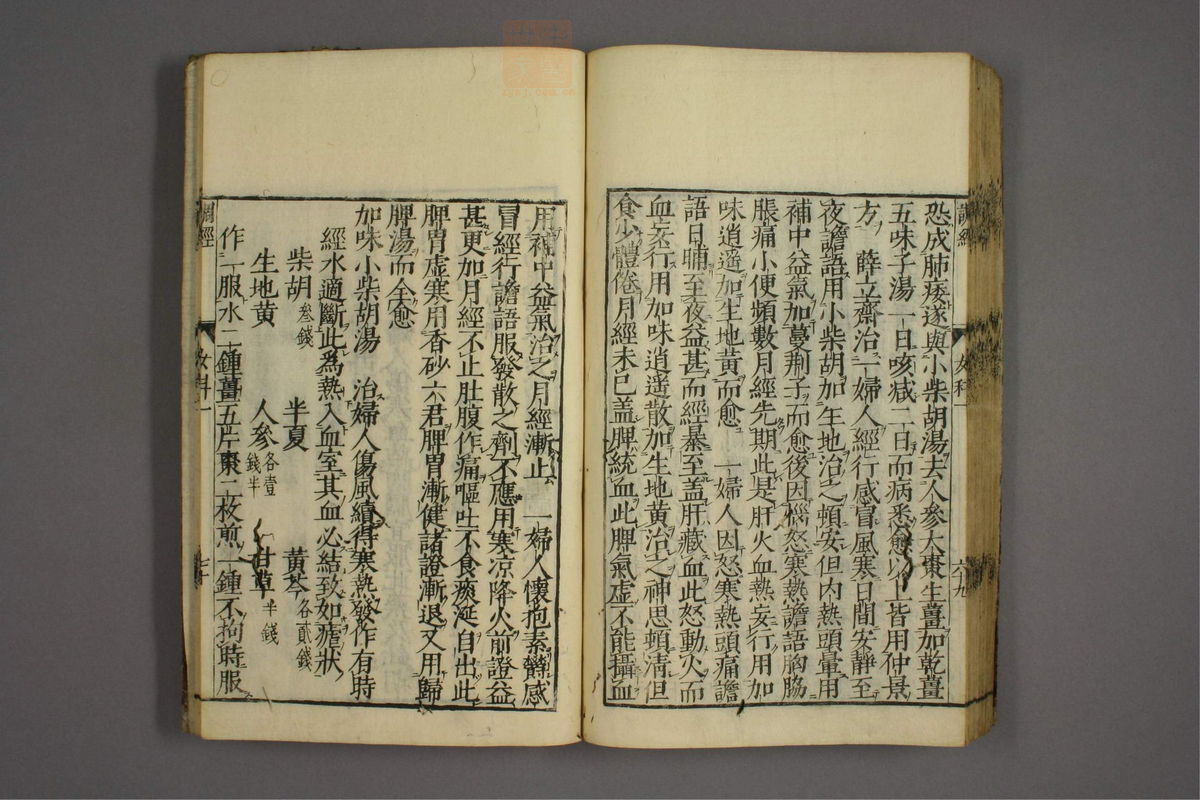 恐成肺痿遂與小柴胡湯去人參大棗生薑加乾薑
五味子湯一日咳減二日而病悉愈以上皆用仲景
方 薛立齋治一婦人經行感冒風寒日間安靜至
夜譫語用小柴胡加生地治之頓安但内熱頭暈用
補中益氣加蔓荆子而愈後因怒寒熱譫語胸脇
脹痛小便頻數月經先期此是肝火血熱妄行用加
味逍遥加生地黄而愈 一婦人因怒寒熱頭痛譫
語日晡至夜益甚而經暴至盖肝藏血此怒動火而
血妄行用加味逍遥散加生地黄治之神思頓清但
食少體倦月經未已盖脾統血此脾氣虚不能攝血
調經
女科一
六十九
用補中益氣治之月經漸止 一婦人懷抱素鬱感
冒經行譫語服發散之劑不應用寒凉降火前證益
甚更加月經不止肚腹作痛嘔吐不食痰涎自出此
脾胃虚寒用香砂六君脾胃漸健諸證漸退又用歸
脾湯而全愈
加味小柴胡湯 治婦人傷風續得寒熱發作有時
經水適斷此爲熱入血室其血必結致如瘧狀
柴胡叁錢 半夏 黄芩各貳錢
生地黄 人參各壹錢半 甘草半錢
作一服水二鍾薑五片棗二枚煎一鍾不拘時服
調經
女科一
七十